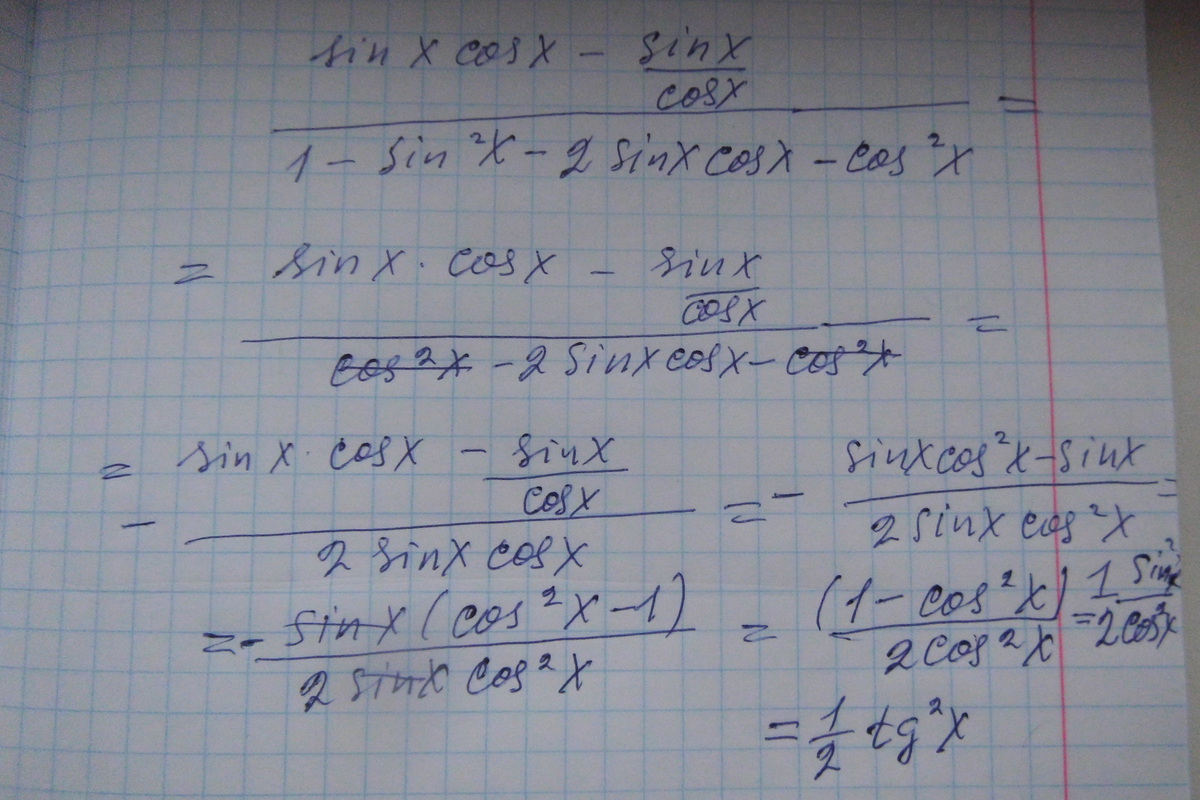 sin x cos x − sin x / cos x
1 − sin²x − 2 sin x cos x − cos²x =
= sin x · cos x − sin x / cos x
cos²x − 2 sin x cos x − cos²x =
= − sin x · cos x − sin x / cos x = − sin x cos²x − sin x =
2 sin x cos x 2 sin x cos²x
= − sin x (cos²x − 1) = (1 − cos²x) = 1 sin²x
2 sin x cos²x 2 cos²x 2 cos²x
= 1/2 tg²x